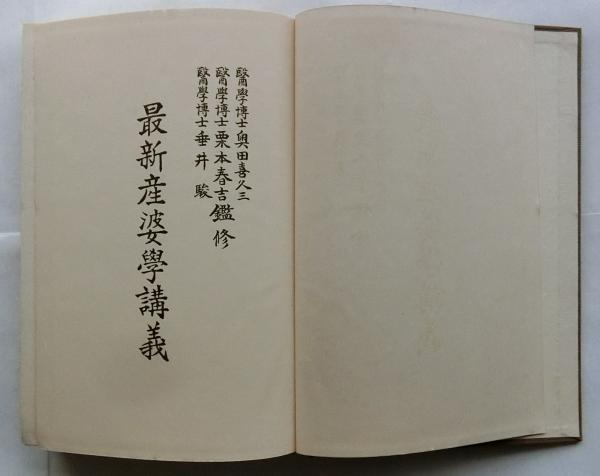 醫學博士 奧田喜久三
醫學博士 栗本春吉 鑑修
醫學博士 垂井 駿
最新産婆學講義